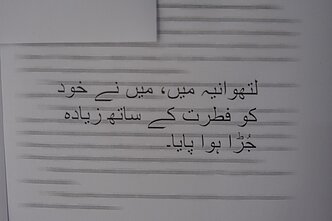 لتھوانیہ میں، میں نے خود
کو فطرت کے ساتھ زیادہ
جُڑا ہوا پایا۔